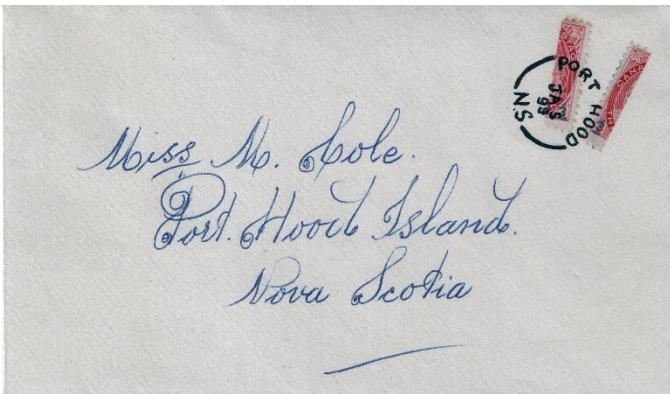 PORT HOOD
JA 5
99
NS
CANA
Miss M. Cole.
Port. Hood Island.
Nova Scotia